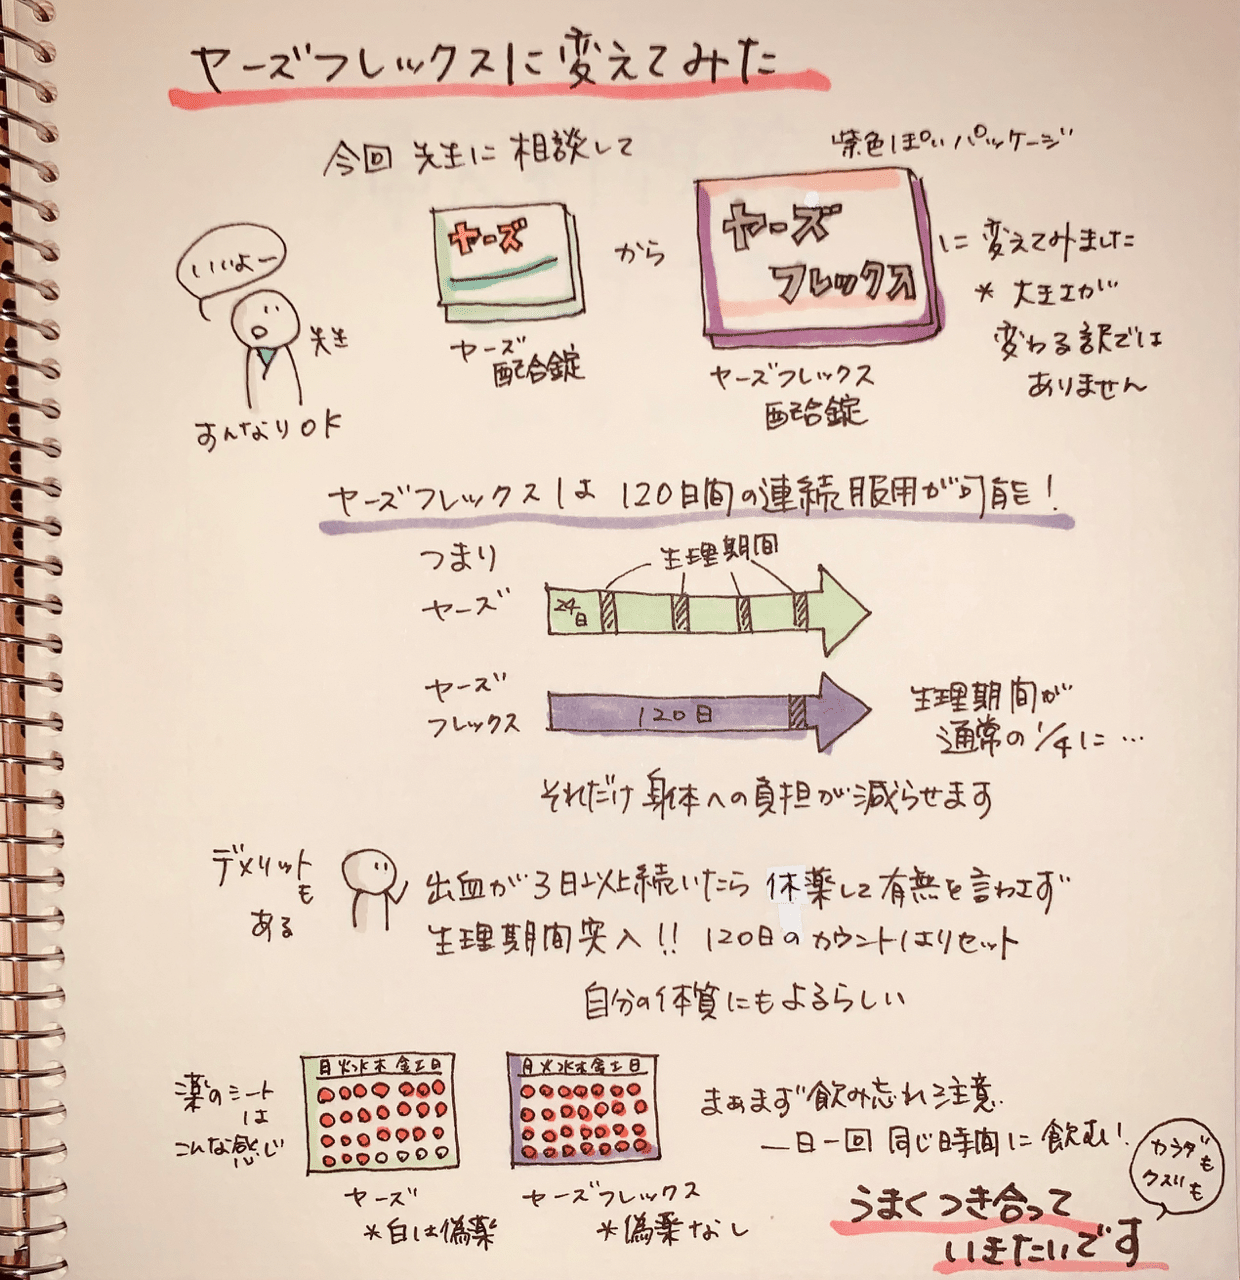 ヤーズフレックスに変えてみた
今回 先生に 相談して
紫色ぽいパッケージ
いいよー
先生
すんなりOK
ヤーズ
ヤーズ
配合錠
から
ヤーズ
フレックス
ヤーズフレックス
配合錠
に変えてみました
* 大きさが
変わる訳では
ありません
ヤーズフレックスは 120日間の連続服用が可能!
つまり
生理期間
ヤーズ
24日
ヤーズ
フレックス
120日
生理期間が
通常の1/4に…
それだけ身体への負担が減らせます
デメリット
も
ある
出血が3日以上続いたら 休薬して有無を言わさず
生理期間突入!! 120日のカウントはリセット
自分の体質にもよるらしい
薬のシート
は
こんな感じ
月火水木金土日
ヤーズ
*白は偽薬
月火水木金土日
ヤーズフレックス
*偽薬なし
まぁまず飲み忘れ注意
一日一回 同じ時間に飲む
カラダも
クスリも
うまくつき合って
いきたいです